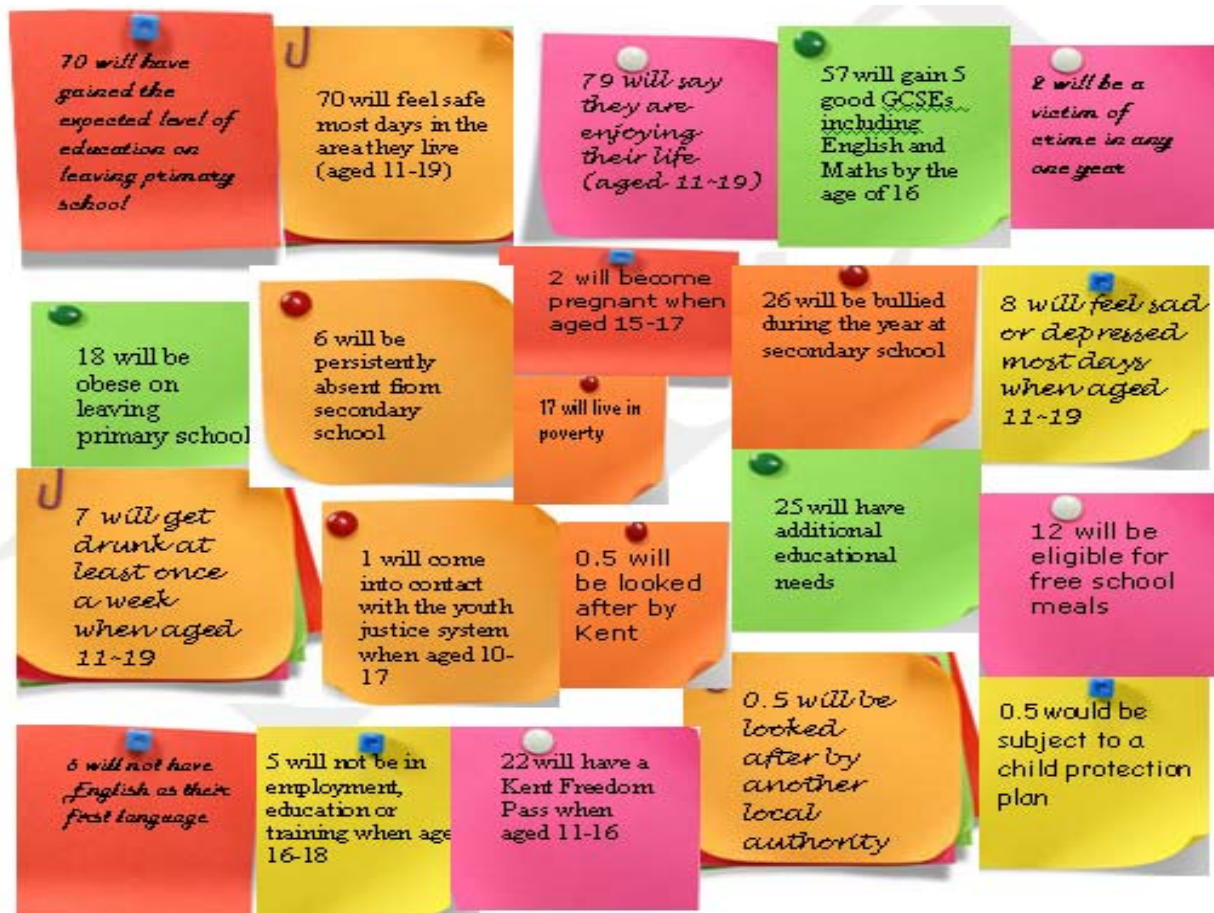 70 will have
gained the
expected level of
education on
leaving primary
school
70 will feel safe
most days in the
area they live
(aged 11-19)
79 will say
they are
enjoying
their life
(aged 11-19)
57 will gain 5
good GCSEs
including
English and
Maths by the
age of 16
will be a
victim of
crime in any
one year
18 will be
obese on
leaving
primary school
6 will be
persistently
absent from
secondary
school
2 will become
pregnant when
aged 15-17
17 will live in
poverty
26 will be bullied
during the year at
secondary school
8 will feel sad
or depressed
most days
when aged
11-19
7 will get
drunk at
least once
a week
when aged
11-19
1 will come
into contact
with the youth
justice system
when aged 10-
17
0.5 will
be looked
after by
Kent
25 will have
additional
educational
needs
12 will be
eligible for
free school
meals
will not have
English as their
first language
5 will not be in
employment,
education or
training when age
16-18
22 will have a
Kent Freedom
Pass when
aged 11-16
0.5 will be
looked
after by
another
local
authority
0.5 would be
subject to a
child protection
plan